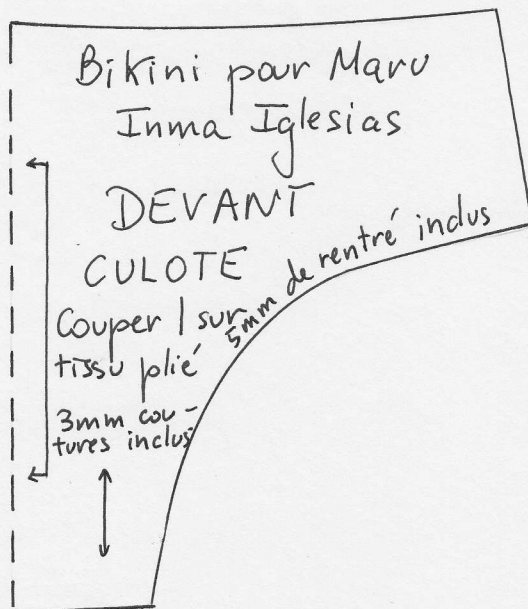 Bikini pour Maru
Inma Iglesias
DEVANT
CULOTE
Couper 1 sur
tissu plié
3mm cou-
tures inclus
5mm de rentré inclus